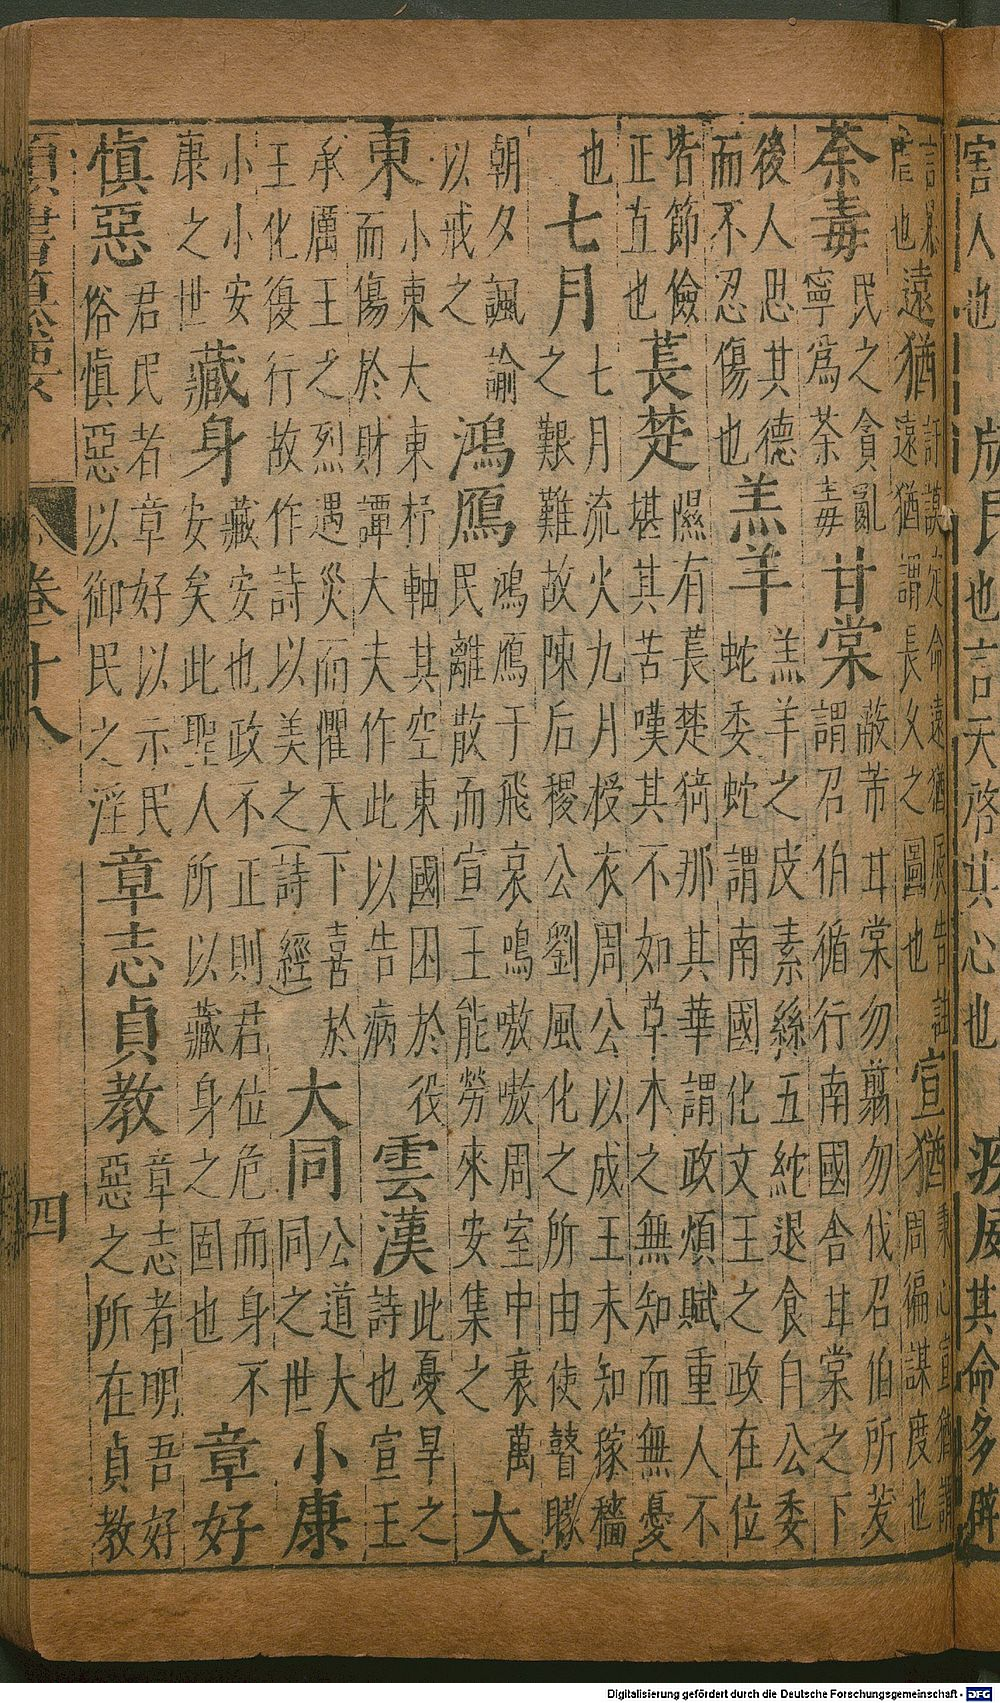 害人也 成民也言天啓其心也 疾威其命多辟
言暴虐也遠猶訏謨定命遠猶辰告註遠猶謂長久之圖也宣猶秉心宣猶謂周徧謀度也
荼毒民之貪亂寧爲荼毒甘棠蔽芾甘棠勿翦勿伐召伯所茇謂召伯循行南國舍甘棠之下
後人思其德而不忍傷也羔羊羔羊之皮素絲五紽退食自公委蛇委蛇謂南國化文王之政在位
皆節儉正直也萇楚隰有萇楚猗那其華謂政煩賦重人不堪其苦嘆其不如草木之無知而無憂
也七月七月流火九月授衣周公以成王未知稼穡之艱難故陳后稷公劉風化之所由使瞽矇
朝夕諷諭以戒之鴻鴈鴻鴈于飛哀鳴嗷嗷周室中衰萬民離散而宣王能勞來安集之大
東小東大東杼軸其空東國困於役而傷於財譚大夫作此以告病雲漢此憂旱之詩也宣王
承厲王之烈遇災而懼天下喜於王化復行故作詩以美之(詩經)大同公道大同之世小康
小小安康之世藏身藏安也政不正則君位危而身不安矣此聖人所以藏身之固也章好
慎惡君民者章好以示民俗慎惡以御民之淫章志貞教章志者明吾好惡之所在貞教
卷十八 四
Digitalisierung gefördert durch die Deutsche Forschungsgemeinschaft - DFG